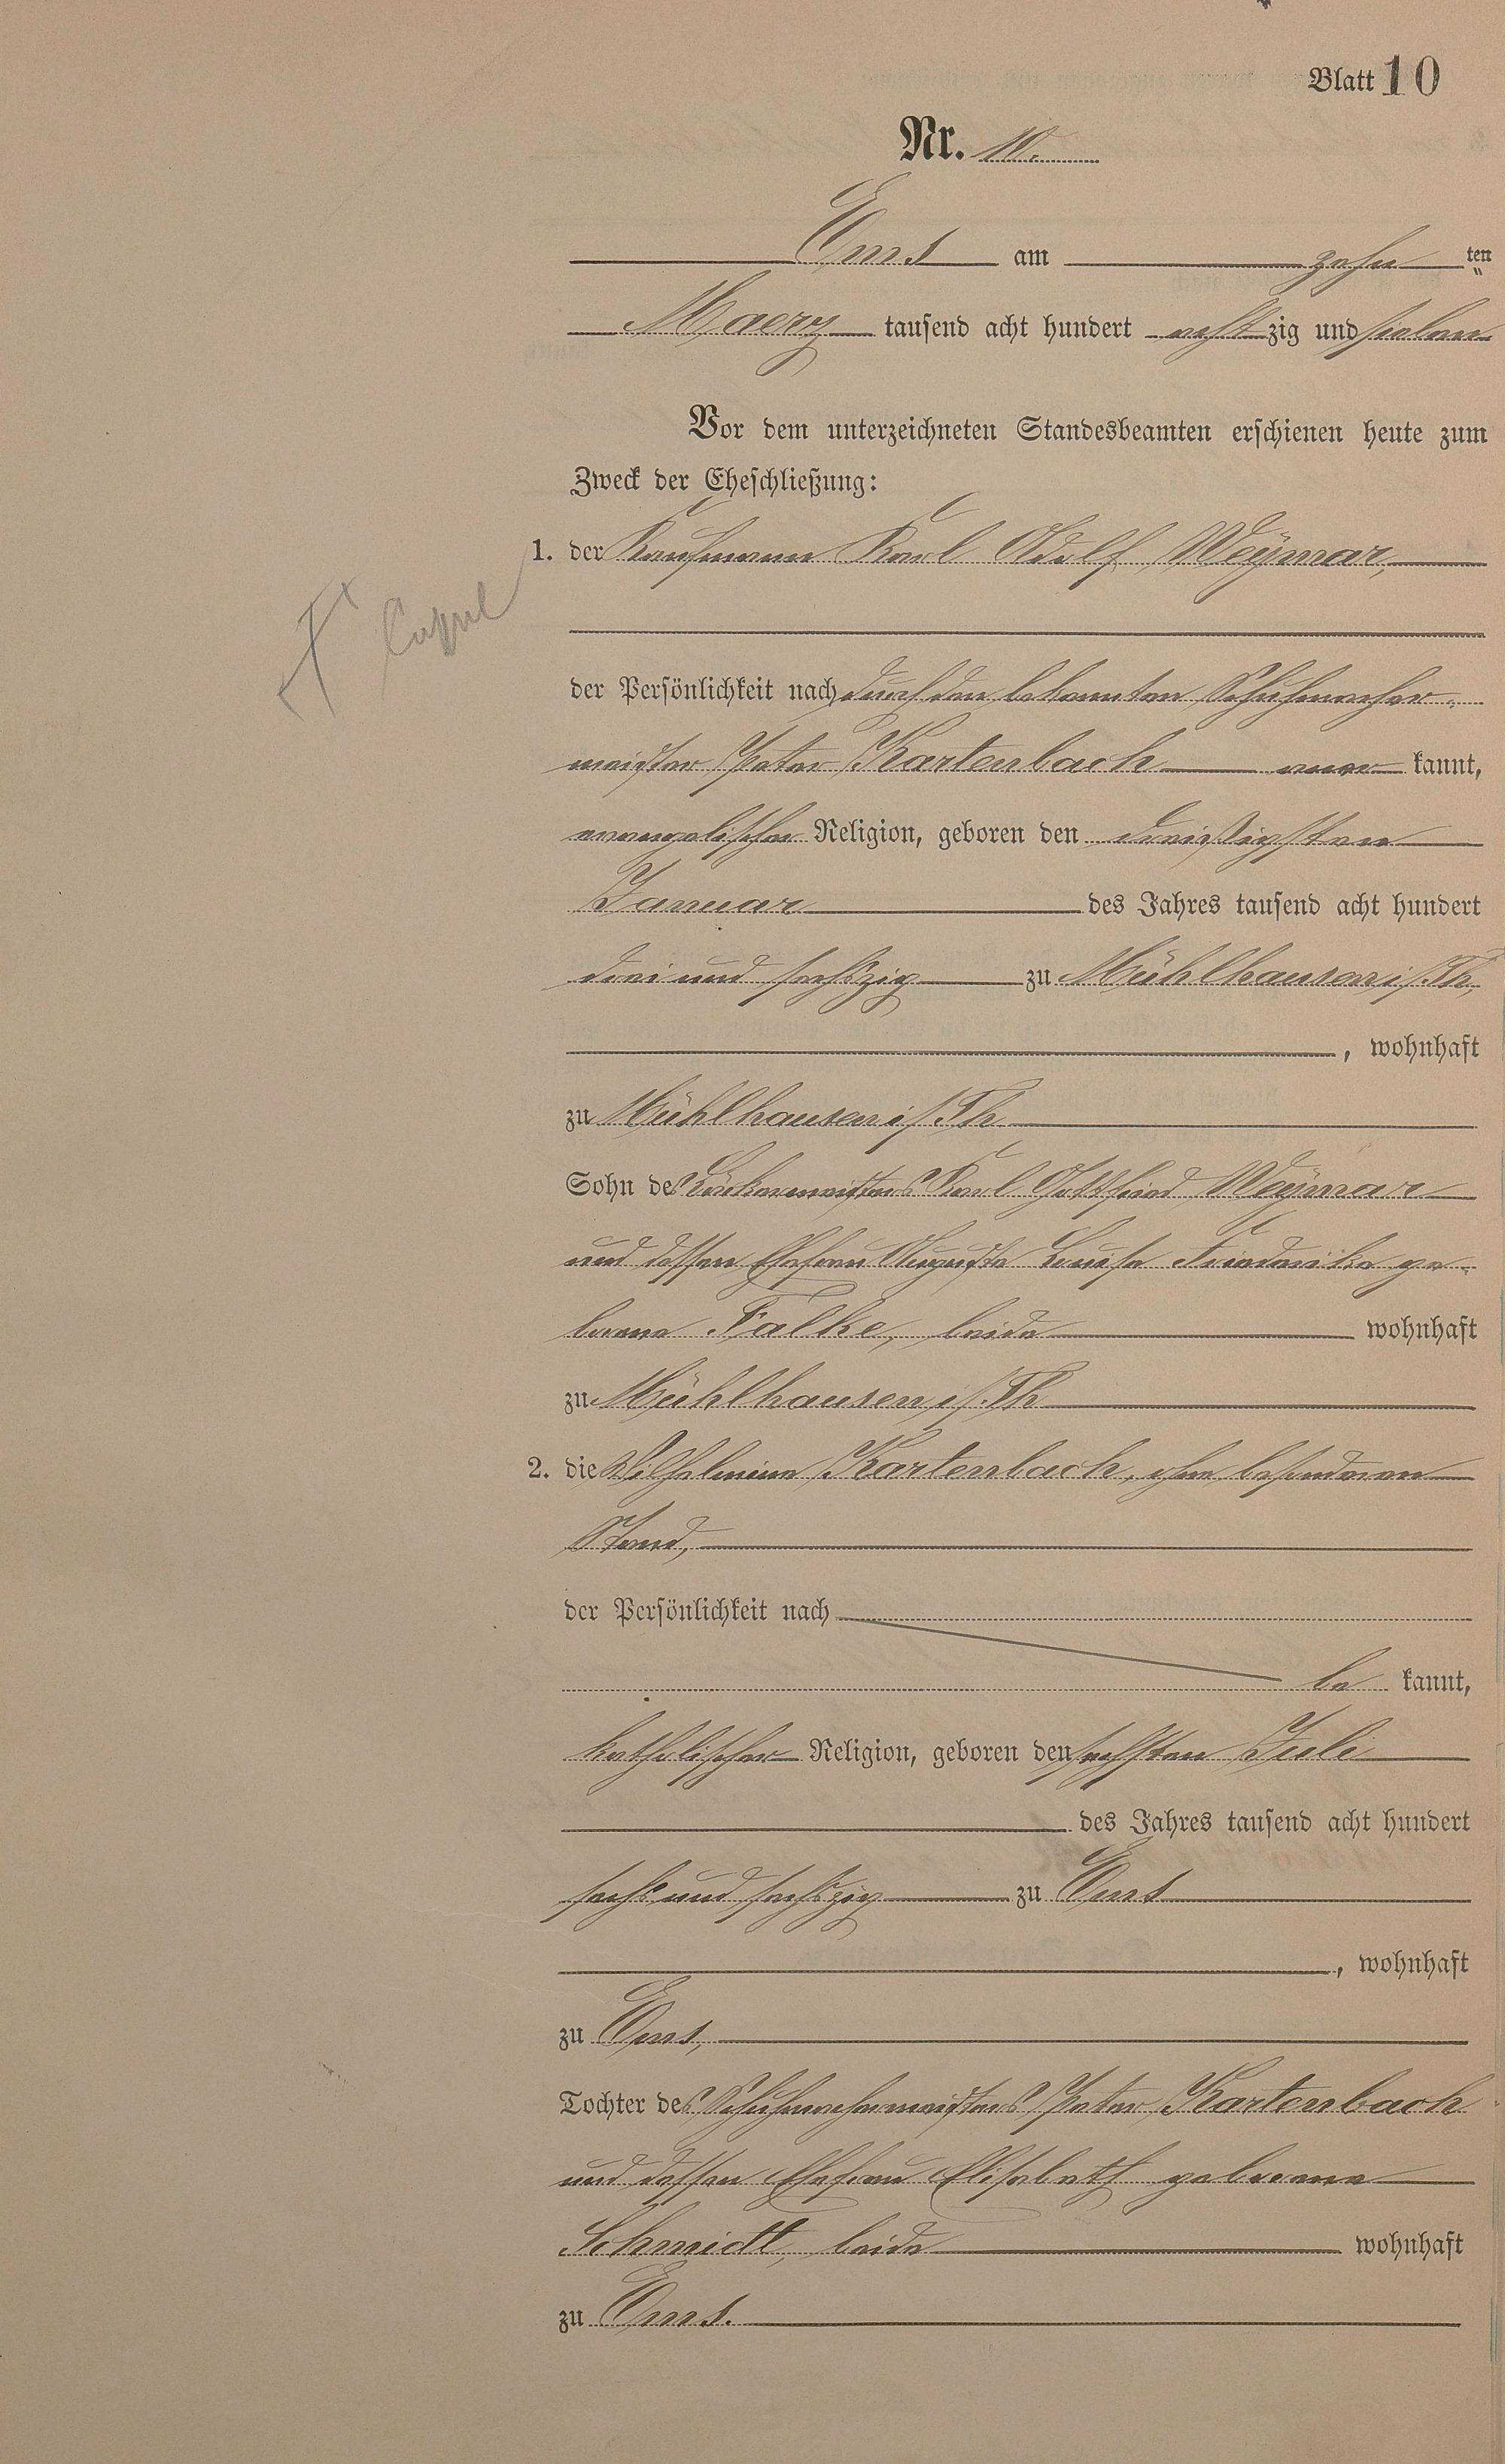 Blatt 10
Nr. 10.
Ems am zehn ten
Maerz tausend acht hundert acht zig und sieben
Vor dem unterzeichneten Standesbeamten erschienen heute zum
Zweck der Eheschließung:
1. der Kaufmann Karl Adolf Weymar,
der Persönlichkeit nach durch den bekannten Schuhmacher-
meister Peter Kartenbach aner kannt,
evangelischer Religion, geboren den dreißigsten
Januar des Jahres tausend acht hundert
drei und sechszig zu Mühlhausen i/Th,
, wohnhaft
zu Mühlhausen i/Th
Sohn des Bäckermeisters Karl Gottfried Weymar
und dessen Ehefrau Auguste Louise Friederike ge-
borene Falke, beide wohnhaft
zu Mühlhausen i/Th
2. die Wilhelmine Kartenbach, ohne besonderen
Stand,
der Persönlichkeit nach
be kannt,
katholischer Religion, geboren den sechsten Juli
des Jahres tausend acht hundert
sechs und sechszig zu Ems
, wohnhaft
zu Ems,
Tochter des Schuhmachermeisters Peter Kartenbach
und dessen Ehefrau Elisabeth geborene
Schmidt, beide wohnhaft
zu Ems.